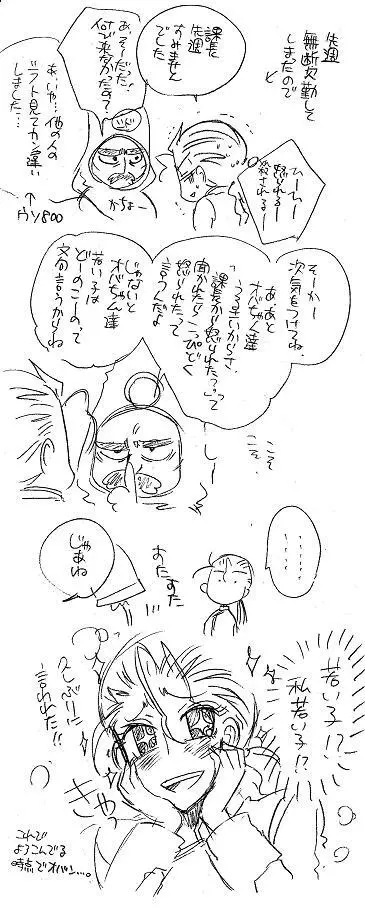 先週
無断欠勤して
しまたので
課長
先週
すみませ
でした
あ、そーだった!
何で来なかったの?
あ、いや…他の人の
シフト見てカン違い
しました…
↑
ウソ800
かちょー
ひぃーっ
怒られるー
殺されるー
そーかー
次気をつけてね
あ、あと
オバちゃん達
うるさいからさ、
「課長から怒られた?」って
聞かれたらこっぴどく
怒られたって
言うんだよ
じゃないと
オバちゃん達
若い子は
どーのこーのって
文句言うからね
こそ
こそ
・・・・・・
じゃあね
すたすた
若い子!?
私若い子!?
久しぶりに
言われた!!
きゃっ
これで
よろこんでる
時点でオバン…。